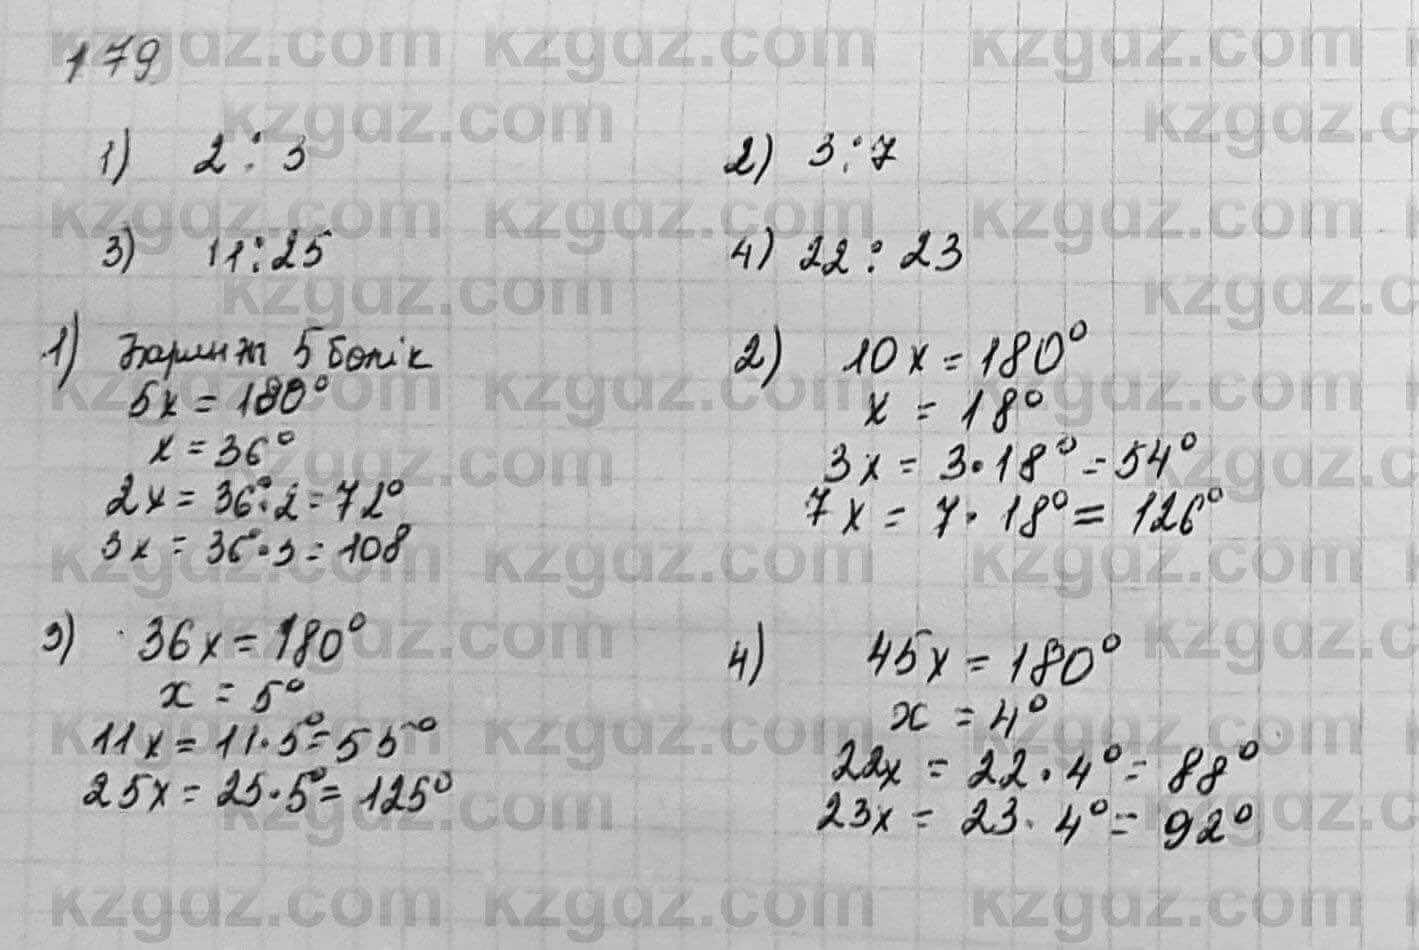 179
1) 2 : 3
2) 3 : 7
3) 11 : 25
4) 22 : 23
1) Барлығы 5 бөлік
5x = 180°
x = 36°
2x = 36°·2 = 72°
3x = 36°·3 = 108
2) 10x = 180°
x = 18°
3x = 3·18° = 54°
7x = 7·18° = 126°
3) 36x = 180°
x = 5°
11x = 11·5° = 55°
25x = 25·5° = 125°
4) 45x = 180°
x = 4°
22x = 22·4° = 88°
23x = 23·4° = 92°
kzgdz.com